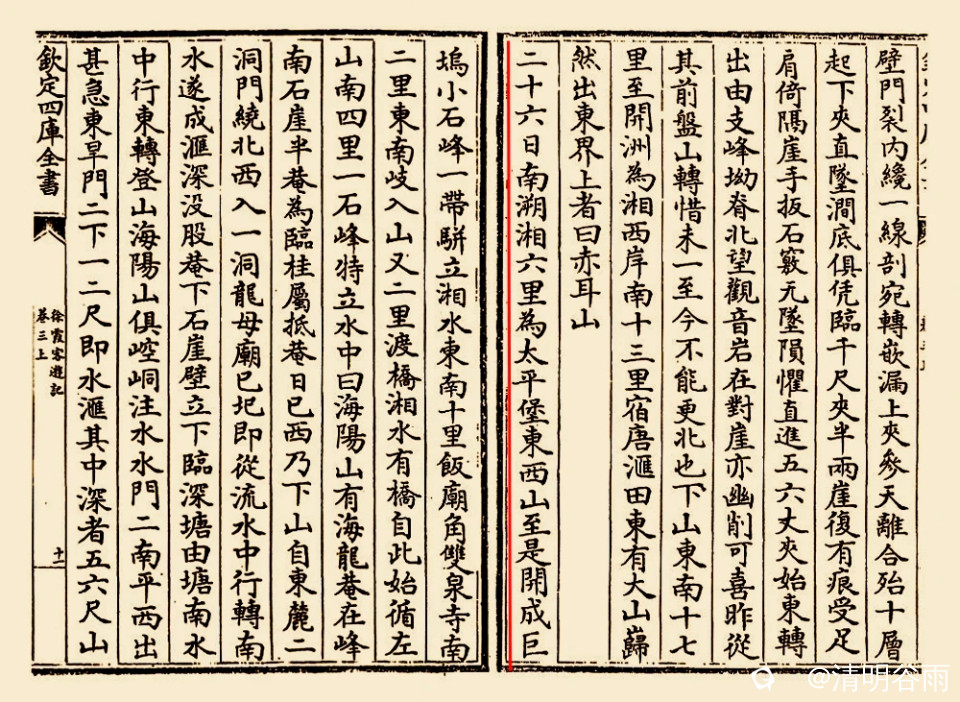 壁門裂内纔一線剖宛轉嵌漏上夾參天離合殆十層
起下夾直墜澗底俱凭臨千尺夾半兩崖復有痕受足
肩倚隅崖手扳石竅无墜隕懼直進五六丈夾始東轉
出由支峰坳脊北望觀音岩在對崖亦幽削可喜昨從
其前盤山轉惜未一至今不能更北也下山東南十七
里至開洲為湘西岸南十三里宿唐滙田東有大山巋
然出東界上者曰赤耳山
二十六日南溯湘六里為太平堡東西山至是開成巨
塢小石峰一帶駢立湘水東南十里飯廟角雙泉寺南
二里東南岐入山又二里渡橋湘水有橋自此始循左
山南四里一石峰特立水中曰海陽山有海龍菴在峰
南石崖半菴為臨桂屬抵菴日已西乃下山自東麓二
洞門繞北西入一洞龍母廟已圮即從流水中行轉南
水遂成滙深没股菴下石崖壁立下臨深塘由塘南水
中行東轉登山海陽山俱崆峒注水水門二南平西出
甚急東旱門二下一二尺即水滙其中深者五六尺山
欽定四庫全書
徐霞客遊記
卷三上
十一
@清明谷雨